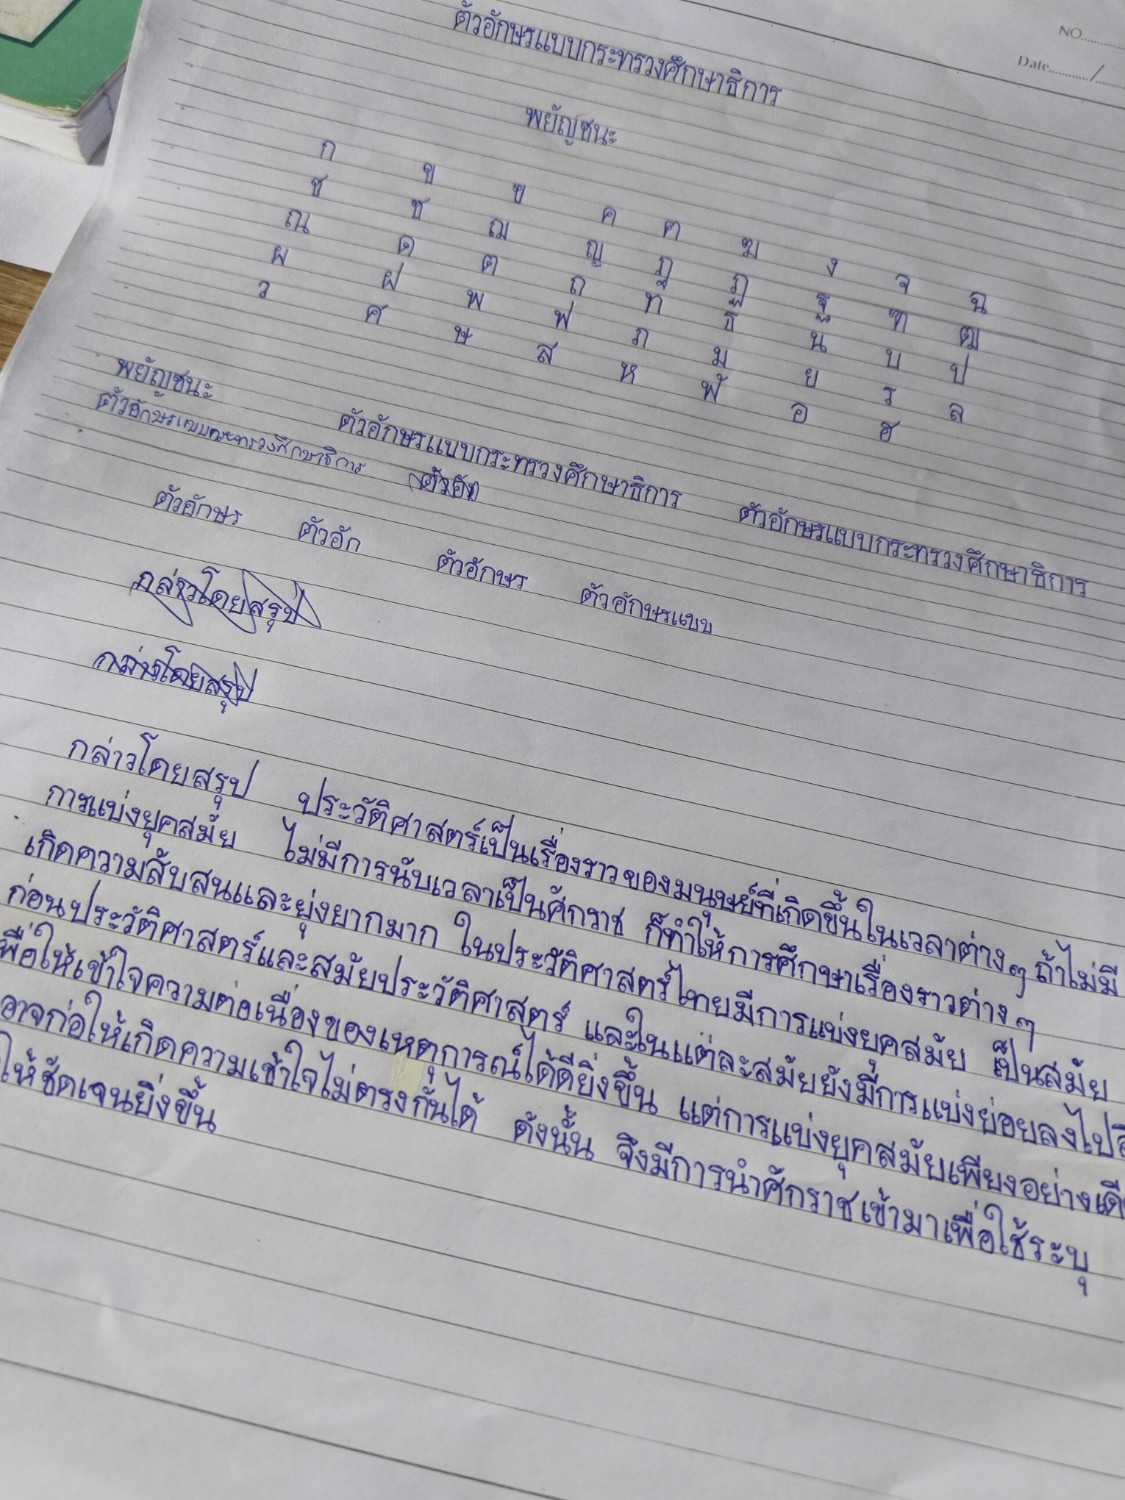 NO.
Date........../..........
ตัวอักษรแบบกระทรวงศึกษาธิการ
พยัญชนะ
ก ข ฃ ค ฅ ฆ ง จ ฉ
ช ซ ฌ ญ ฎ ฏ ฐ ฑ ฒ
ณ ด ต ถ ท ธ น บ ป
ผ ฝ พ ฟ ภ ม ย ร ล
ว ศ ษ ส ห ฬ อ ฮ
พยัญชนะ ตัวอักษรแบบกระทรวงศึกษาธิการ ตัวอักษรแบบกระทรวงศึกษาธิการ
ตัวอักษรแบบกระทรวงศึกษาธิการ
ตัวอักษร ตัวอัก ตัวอักษร ตัวอักษรแบบ
กล่าวโดยสรุป
กล่าวโดยสรุป
กล่าวโดยสรุป ประวัติศาสตร์เป็นเรื่องราวของมนุษย์ที่เกิดขึ้นในเวลาต่าง ๆ ถ้าไม่มี
การแบ่งยุคสมัย ไม่มีการนับเวลาเป็นศักราช ก็ทำให้การศึกษาเรื่องราวต่าง ๆ
เกิดความสับสนและยุ่งยากมาก ในประวัติศาสตร์ไทยมีการแบ่งยุคสมัย เป็นสมัย
ก่อนประวัติศาสตร์และสมัยประวัติศาสตร์ และในแต่ละสมัยยังมีการแบ่งย่อยลงไป
พื่อให้เข้าใจความต่อเนื่องของเหตุการณ์ได้ดียิ่งขึ้น แต่การแบ่งยุคสมัยเพียงอย่างเดี
อาจก่อให้เกิดความเข้าใจไม่ตรงกันได้ ดังนั้น จึงมีการนำศักราชเข้ามาเพื่อใช้ระบุ
ให้ชัดเจนยิ่งขึ้น